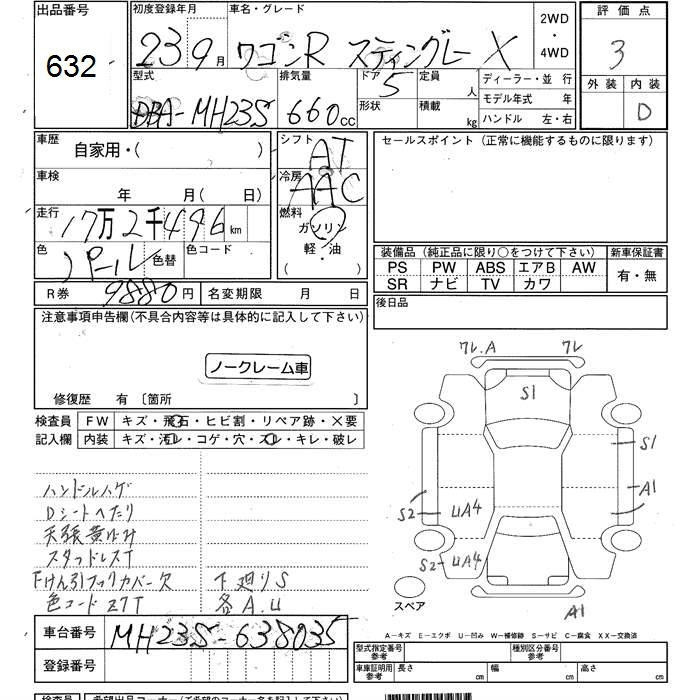 出品番号
632
初度登録年月
23 9月
車名・グレード
ワゴンR スティングレー X
2WD
・
4WD
評価点
3
型式
DBA-MH23S
排気量
660cc
ドア
5
形状
定員
人
積載
kg
ディーラー・並 行
モデル年式 年
ハンドル 左・右
外装
内装
D
車歴
自家用・( )
シフト
AT
セールスポイント (正常に機能するものに限ります)
車検
年 月( 日)
冷房
AAC
走行
17万2千496km
燃料
ガソリン
軽・油
( )
色
パール
色替
色コード
装備品 (純正品に限り○をつけて下さい)
新車保証書
PS PW ABS エアB AW
SR ナビ TV カワ
有・無
R券
9880円
名変期限 月 日
後日品
注意事項申告欄(不具合内容等は具体的に記入して下さい)
ノークレーム車
修復歴 有 〔箇所 〕
検査員
記入欄
FW キズ・飛石・ヒビ割・リペア跡・×要
内装 キズ・汚レ・コゲ・穴・スレ・キレ・破レ
ハンドルハゲ
Dシートへたり
天張黄ばみ
スタッドレスT
Fけん引フックカバー欠
色コード Z7T
下廻りS
各A.U
ワレ.A
ワレ
S1
S1
A1
S2
UA4
S2
UA4
A1
スペア
車台番号
MH23S-638035
登録番号
A-キズ E-エクボ U-凹み W-補修跡 S-サビ C-腐食 XX-交換済
型式指定番号
参考
種別区分番号
参考
車庫証明用
参考
長さ cm
幅 cm
高さ cm